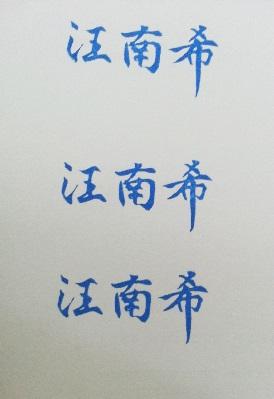 汪南希
汪南希
汪南希